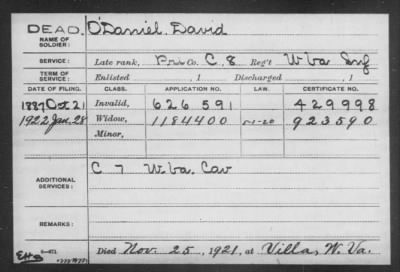 DEAD. O'Daniel, David
NAME OF SOLDIER:
SERVICE: Late rank, Priv Co. C, 8 Reg't W Va Inf
TERM OF SERVICE: Enlisted , 1 Discharged , 1
DATE OF FILING. CLASS. APPLICATION NO. LAW. CERTIFICATE NO.
1887 Oct 21 Invalid, 626 591 429998
1922 Jan. 28 Widow, 1184400 5-1-20 923590
Minor,
ADDITIONAL SERVICES: C 7 W. Va. Cav
REMARKS:
Died Nov. 25, 1921, at Villa, W. Va.